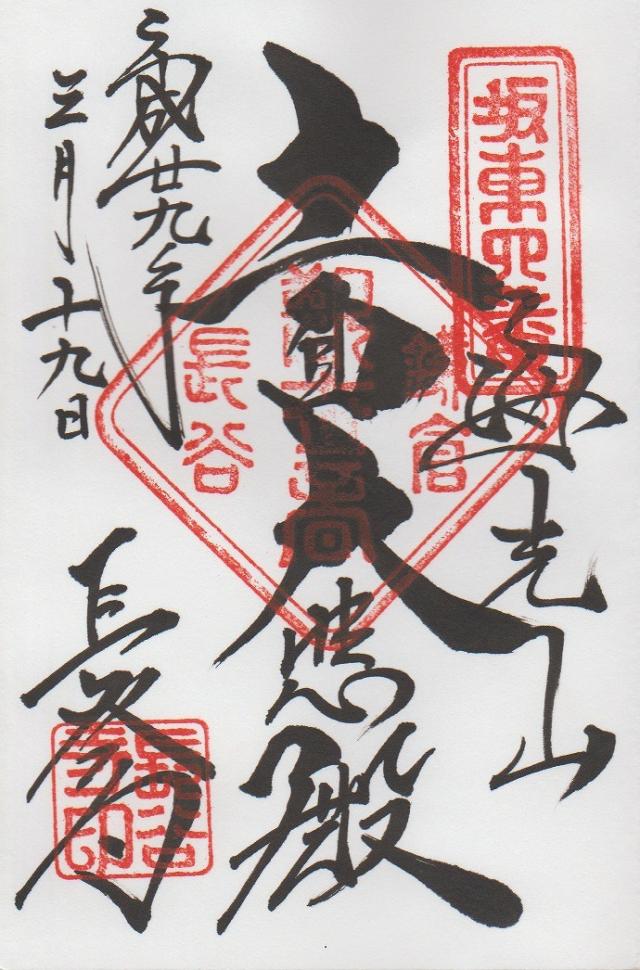 坂東四番
海光山
鎌倉
十一面大悲殿
長谷
平成廿九年
三月十九日
長谷寺
長谷寺印